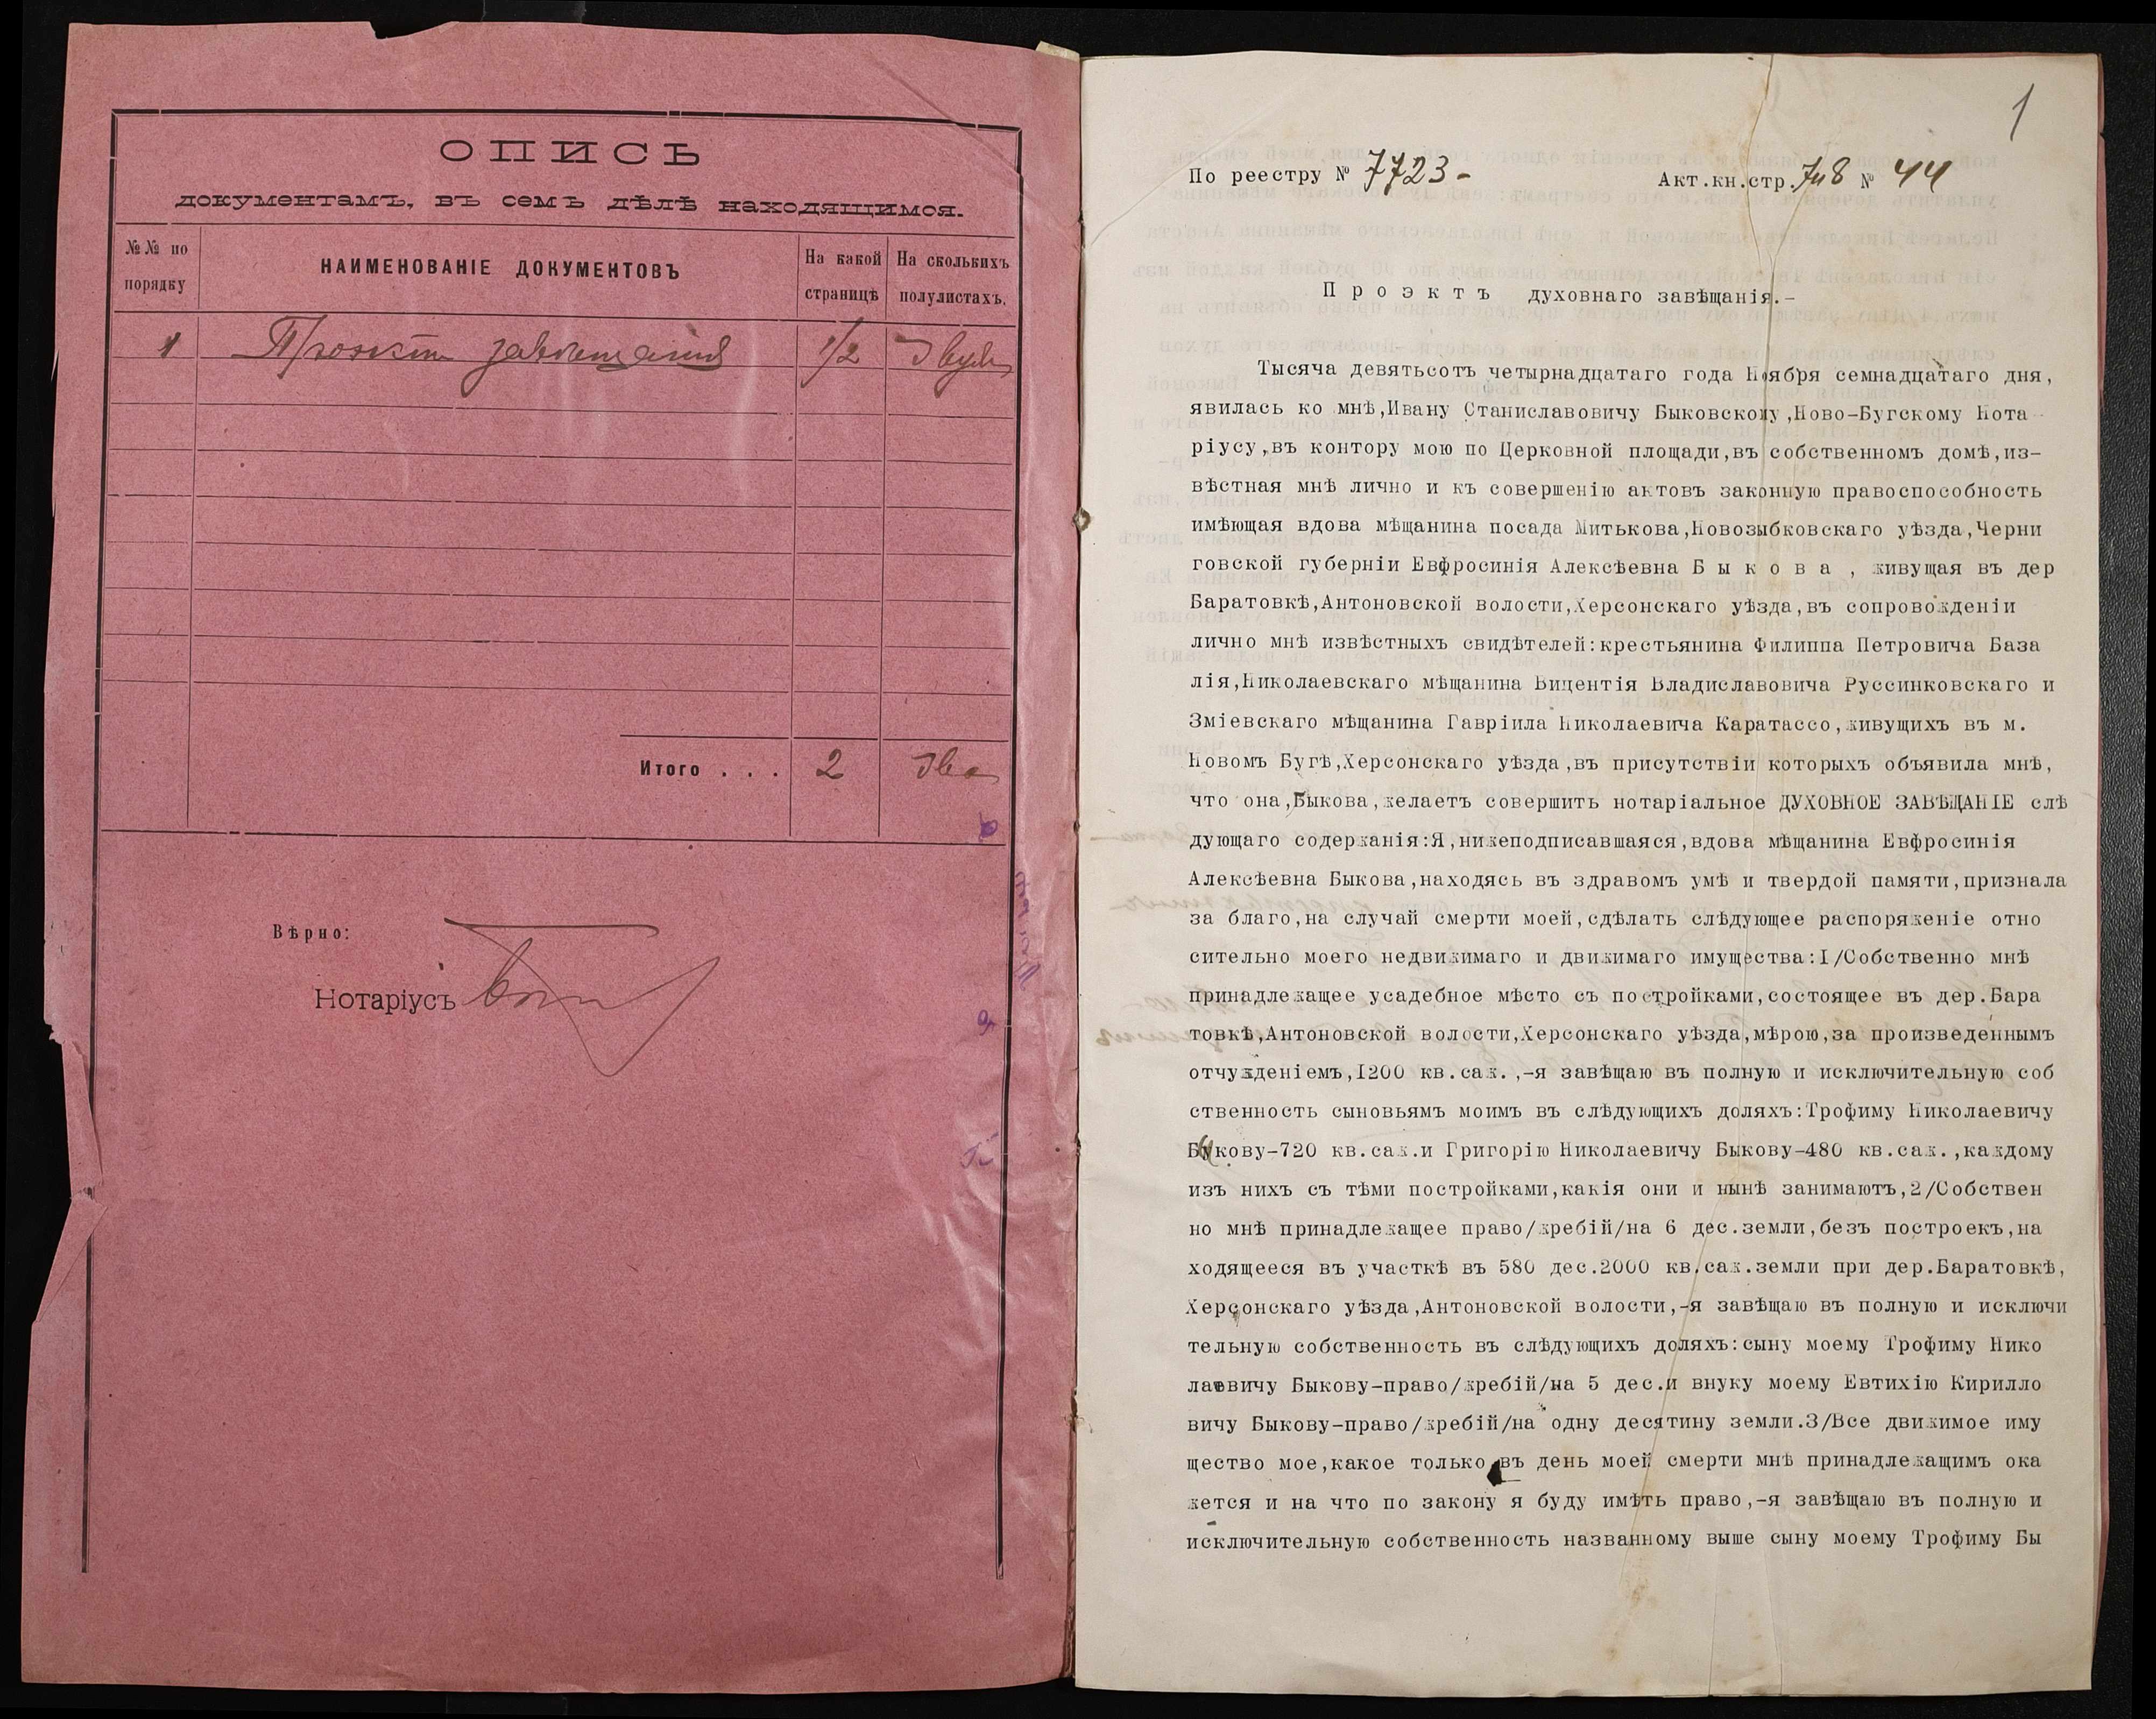 ОПИСЬ
документамъ, въ семъ дѣлѣ находящимся.
№№ по порядку
НАИМЕНОВАНІЕ ДОКУМЕНТОВЪ
На какой страницѣ
На сколькихъ полулистахъ.
1 Проэктъ завѣщанія 1/2 двухъ
Итого . . . 2 два
Вѣрно:
Нотаріусъ
1
По реестру № 7723- Акт.кн.стр. 7и8 № 44
Проэктъ духовнаго завѣщанія.-
Тысяча девятьсотъ четырнадцатаго года Ноября семнадцатаго дня,
явилась ко мнѣ,Ивану Станиславовичу Быковскому,Ново-Бугскому Нота
ріусу,въ контору мою по Церковной площади,въ собственномъ домѣ,из-
вѣстная мнѣ лично и къ совершенію актовъ законную правоспособность
имѣющая вдова мѣщанина посада Митькова,Новозыбковскаго уѣзда,Черни
говской губерніи Евфросинія Алексѣевна Быкова, живущая въ дер
Баратовкѣ,Антоновской волости,Херсонскаго уѣзда,въ сопровожденіи
лично мнѣ извѣстныхъ свидѣтелей:крестьянина Филиппа Петровича База
лія,Николаевскаго мѣщанина Вицентія Владиславовича Руссинковскаго и
Зміевскаго мѣщанина Гавріила Николаевича Каратассо,живущихъ въ м.
Новомъ Бугѣ,Херсонскаго уѣзда,въ присутствіи которыхъ объявила мнѣ,
что она,Быкова,желаетъ совершить нотаріальное ДУХОВНОЕ ЗАВѢЩАНІЕ слѣ
дующаго содержанія:Я,нижеподписавшаяся,вдова мѣщанина Евфросинія
Алексѣевна Быкова,находясь въ здравомъ умѣ и твердой памяти,признала
за благо,на случай смерти моей,сдѣлать слѣдующее распоряженіе отно
сительно моего недвижимаго и движимаго имущества:I/Собственно мнѣ
принадлежащее усадебное мѣсто съ постройками,состоящее въ дер.Бара
товкѣ,Антоновской волости,Херсонскаго уѣзда,мѣрою,за произведеннымъ
отчужденіемъ,I200 кв.саж.,-я завѣщаю въ полную и исключительную соб
ственность сыновьямъ моимъ въ слѣдующихъ доляхъ:Трофиму Николаевичу
Быкову-720 кв.саж.и Григорію Николаевичу Быкову-480 кв.саж.,каждому
изъ нихъ съ тѣми постройками,какія они и нынѣ занимаютъ,2/Собствен
но мнѣ принадлежащее право/жребій/на 6 дес.земли,безъ построекъ,на
ходящееся въ участкѣ въ 580 дес.2000 кв.саж.земли при дер.Баратовкѣ,
Херсонскаго уѣзда,Антоновской волости,-я завѣщаю въ полную и исключи
тельную собственность въ слѣдующихъ доляхъ:сыну моему Трофиму Нико
лаевичу Быкову-право/жребій/на 5 дес.и внуку моему Евтихію Кирилло
вичу Быкову-право/жребій/на одну десятину земли.3/Все движимое иму
щество мое,какое только въ день моей смерти мнѣ принадлежащимъ ока
жется и на что по закону я буду имѣть право,-я завѣщаю въ полную и
исключительную собственность названному выше сыну моему Трофиму Бы